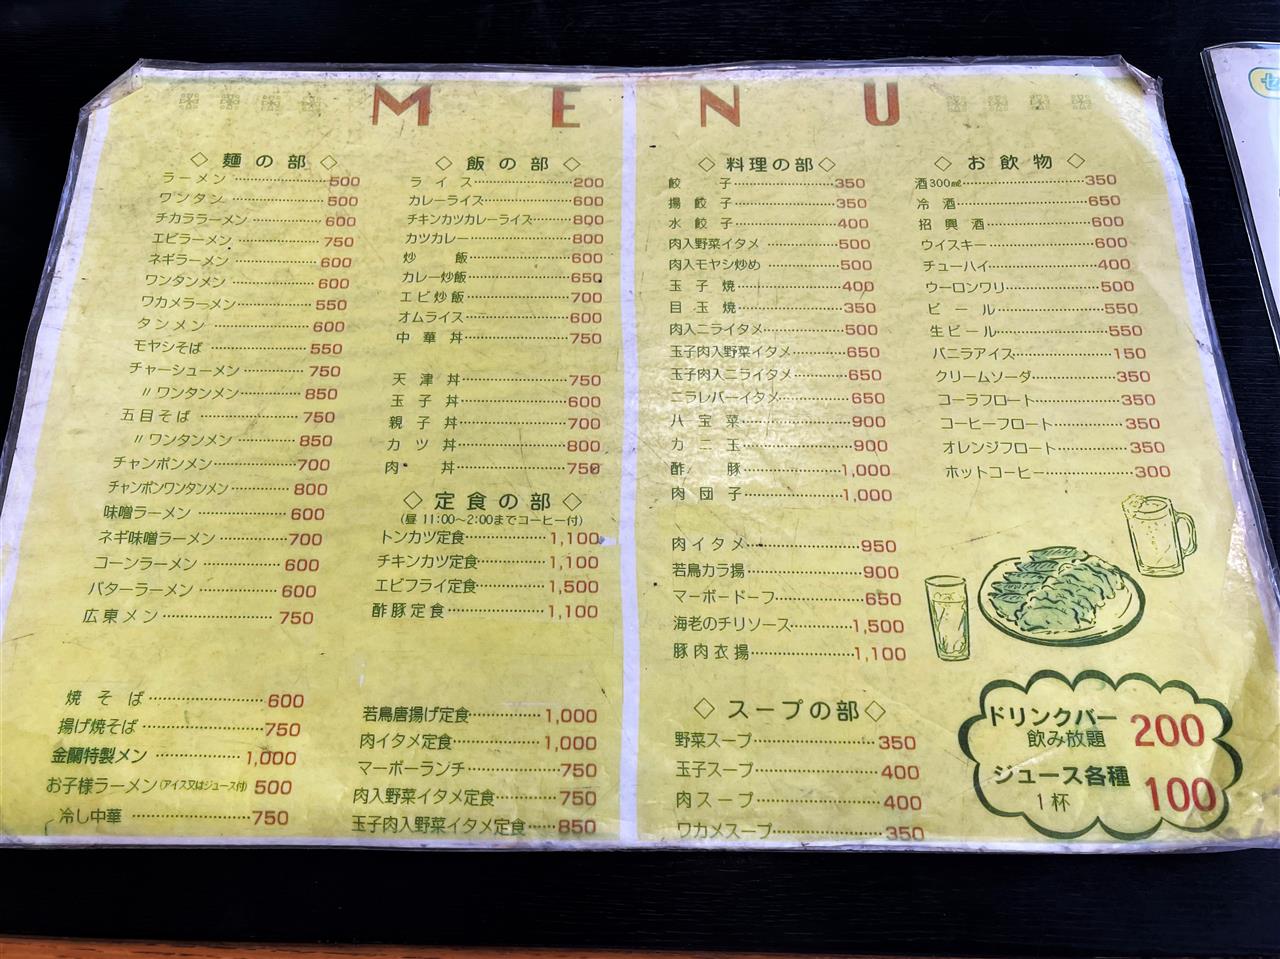 MENU
◇ 麺の部 ◇
ラーメン 500
ワンタン 500
チカララーメン 600
エビラーメン 750
ネギラーメン 600
ワンタンメン 600
ワカメラーメン 550
タンメン 600
モヤシそば 550
チャーシューメン 750
〃ワンタンメン 850
五目そば 750
〃ワンタンメン 850
チャンポンメン 700
チャンポンワンタンメン 800
味噌ラーメン 600
ネギ味噌ラーメン 700
コーンラーメン 600
バターラーメン 600
広東メン 750
焼そば 600
揚げ焼そば 750
金蘭特製メン 1,000
お子様ラーメン(アイス又はジュース付) 500
冷し中華 750
◇ 飯の部 ◇
ライス 200
カレーライス 600
チキンカツカレーライス 800
カツカレー 800
炒飯 600
カレー炒飯 650
エビ炒飯 700
オムライス 600
中華丼 750
天津丼 750
玉子丼 600
親子丼 700
カツ丼 800
肉丼 750
◇ 定食の部 ◇
(昼 11:00〜2:00までコーヒー付)
トンカツ定食 1,100
チキンカツ定食 1,100
エビフライ定食 1,500
酢豚定食 1,100
若鳥唐揚げ定食 1,000
肉イタメ定食 1,000
マーボーランチ 750
肉入野菜イタメ定食 750
玉子肉入野菜イタメ定食 850
◇ 料理の部 ◇
餃子 350
揚餃子 350
水餃子 400
肉入野菜イタメ 500
肉入モヤシ炒め 500
玉子焼 400
目玉焼 350
肉入ニライタメ 500
玉子肉入野菜イタメ 650
玉子肉入ニライタメ 650
ニラレバーイタメ 650
八宝菜 900
カニ玉 900
酢豚 1,000
肉団子 1,000
肉イタメ 950
若鳥カラ揚 900
マーボードーフ 650
海老のチリソース 1,500
豚肉衣揚 1,100
◇ スープの部 ◇
野菜スープ 350
玉子スープ 400
肉スープ 400
ワカメスープ 350
◇ お飲物 ◇
酒300㎖ 350
冷酒 650
招興酒 600
ウイスキー 600
チューハイ 400
ウーロンワリ 500
ビール 550
生ビール 550
バニラアイス 150
クリームソーダ 350
コーラフロート 350
コーヒーフロート 350
オレンジフロート 350
ホットコーヒー 300
ドリンクバー
飲み放題 200
ジュース各種
1杯 100
セ